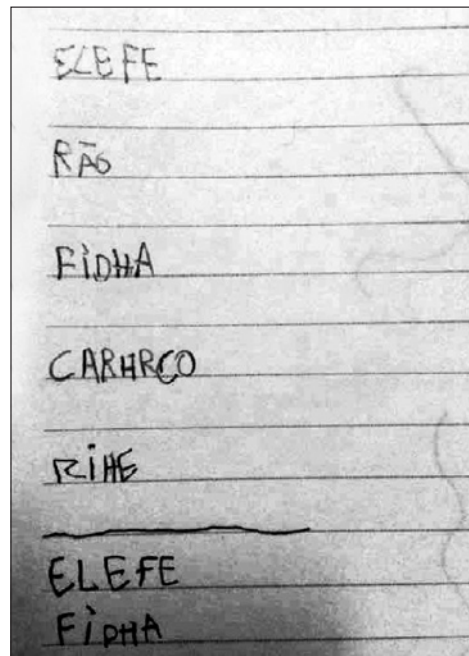 ELEFE
RÃO
FIDHA
CARHRCO
RIHE
ELEFE
FIDHA